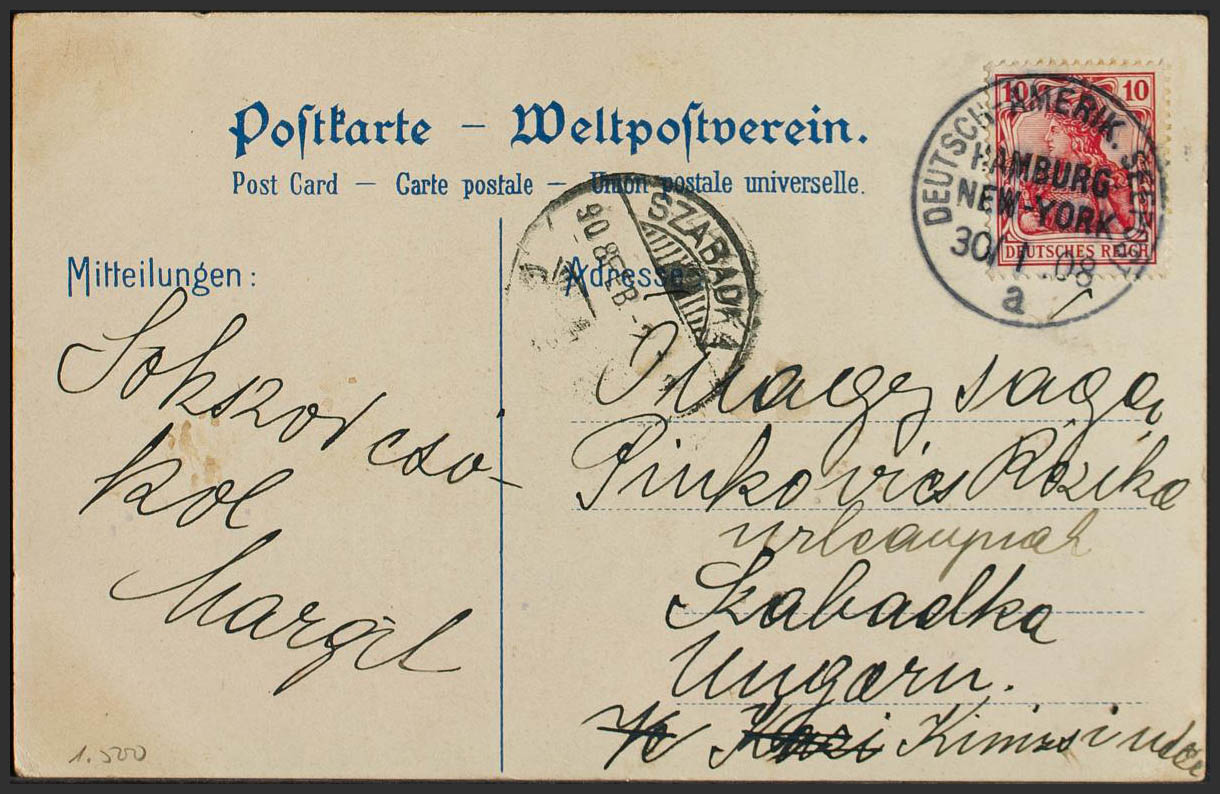 Postkarte – Weltpostverein.
Post Card – Carte postale – Union postale universelle.
10 10
DEUTSCHES REICH
DEUTSCH-AMERIK. SEEPOST
HAMBURG
NEW-YORK
30/1 .08
a
SZABADKA
908 FEB
Mitteilungen:
Sokszor csó-
kol
Margit
Adresse:
Nagysága
Pinkovics Rózika
urleánynak
Szabadka
Ungarn.
Kinizsi utca
1.500